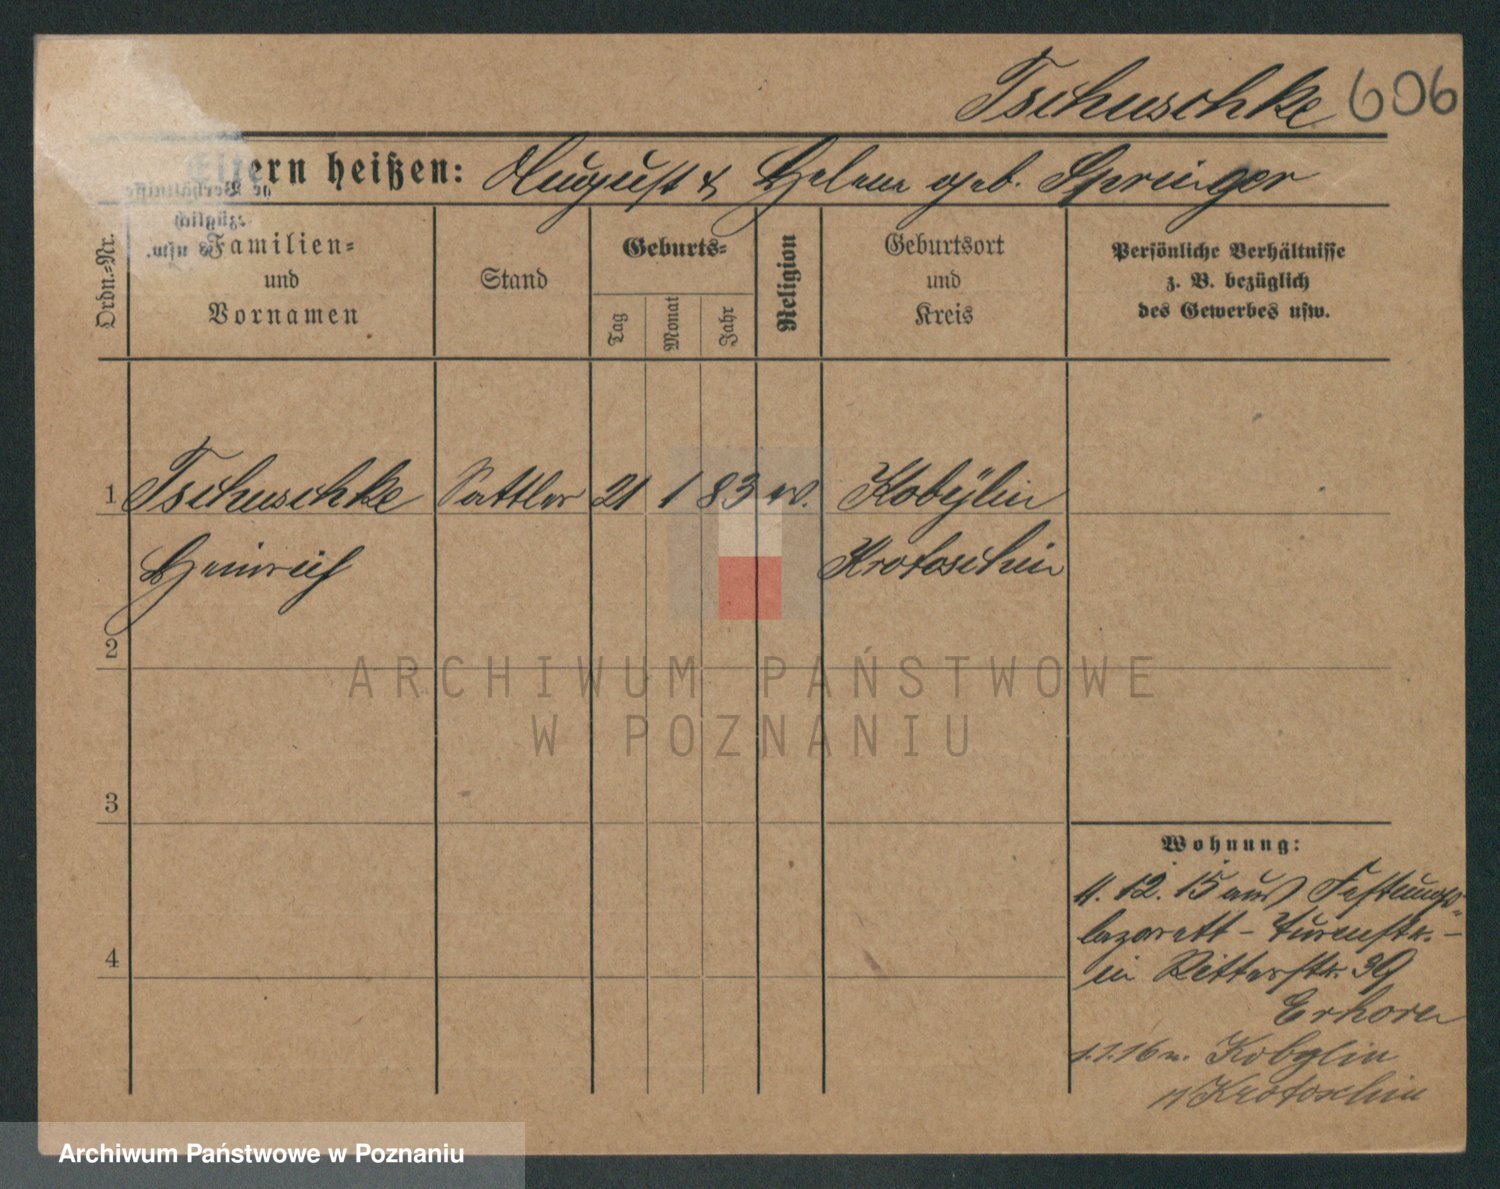 Tschuschke 606
Eltern heißen: August & Helene geb. Springer
Ordn.=Nr.
Familien=
und
Vornamen
Stand
Geburts=
Tag
Monat
Jahr
Religion
Geburtsort
und
Kreis
Persönliche Verhältnisse
z. B. bezüglich
des Gewerbes usw.
1 Tschuschke Sattler 21 1 83 ev. Kobylin
Heinrich Krotoschin
2
ARCHIWUM PAŃSTWOWE
W POZNANIU
3
Wohnung:
4. 12. 15 aus Festungs=
lazarett - Turenstr. -
4
in Ritterstr. 39
1.1.16 n. Kobylin
Krotoschin
Archiwum Państwowe w Poznaniu